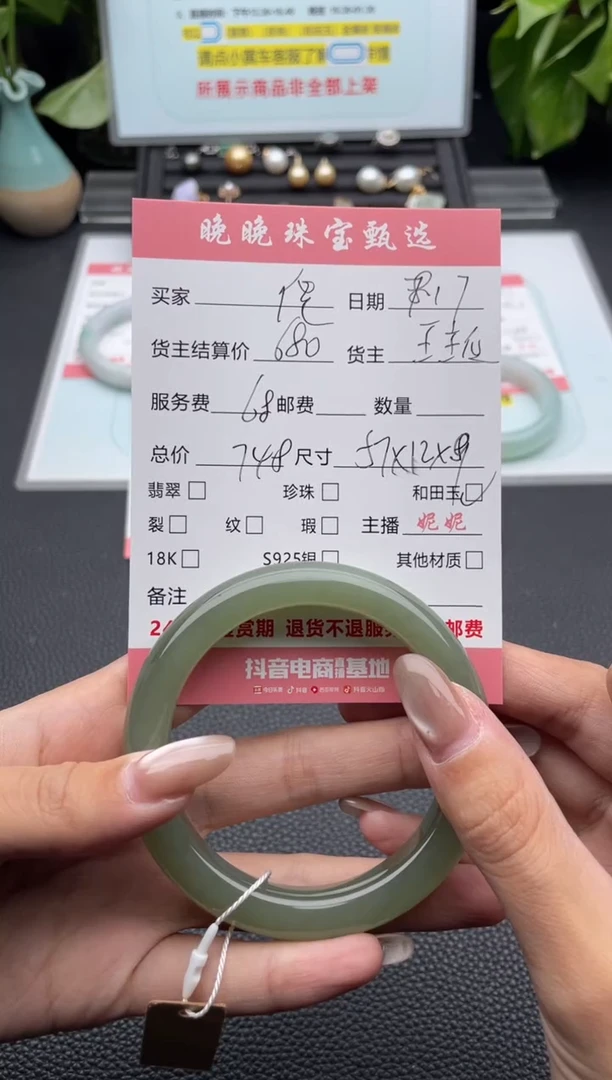 请点小黄车客服了解
所展示商品非全部上架
晚晚珠宝甄选
买家 日期
货主结算价 680 货主
服务费 68 邮费 数量
总价 748 尺寸 57X12X9
翡翠 珍珠 和田玉
裂 纹 瑕 主播 妮妮
18K S925银 其他材质
备注
退货不退服 邮费
抖音电商直播基地
抖音 抖音火山版